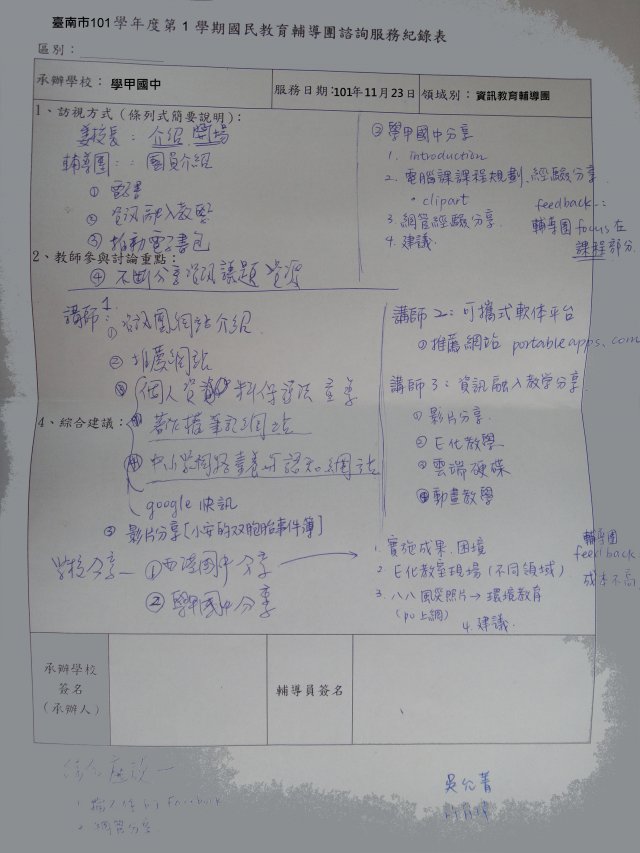 臺南市101學年度第1學期國民教育輔導團諮詢服務紀錄表
區別：
承辦學校： 學甲國中
服務日期：101年11月23日
領域別： 資訊教育輔導團
1、訪視方式（條列式簡要說明）：
姜校長： 介紹 開場
輔導團：： 團員介紹
① 電子書
② 資訊融入教學
③ 推動電子書包
2、教師參與討論重點：
④ 不斷分享資訊議題 資源
② 學甲國中分享
1. introduction
2. 電腦課課程規劃、經驗分享.
• clipart
3. 網管經驗分享.
4. 建議.
feedback：
輔導團 focus 在
課程部分.
講師1：
① 資訊團網站介紹.
② 推薦網站
③ 個人資料保護法 宣導
4、綜合建議：
筆記網站
④ 中小學網路素養與認知網站
google 快訊
③ 影片分享[小安的双胞胎事件簿]
講師2：可攜式軟体平台
① 推薦網站 portableapps.com
講師3：資訊融入教学分享.
① 影片分享.
② E化教學
③ 雲端硬碟
④ 動畫教學
學校分享—
① 西港國中分享
② 學甲國中分享
1. 實施成果、困境
2. E化教室現場（不同領域）
3. 八八風災照片→環境教育
（po上網）
4. 建議.
輔導團
feedback
成本不高.
承辦學校
簽名
（承辦人）
輔導員簽名
facebook
2. 網管分享.
吳允菁